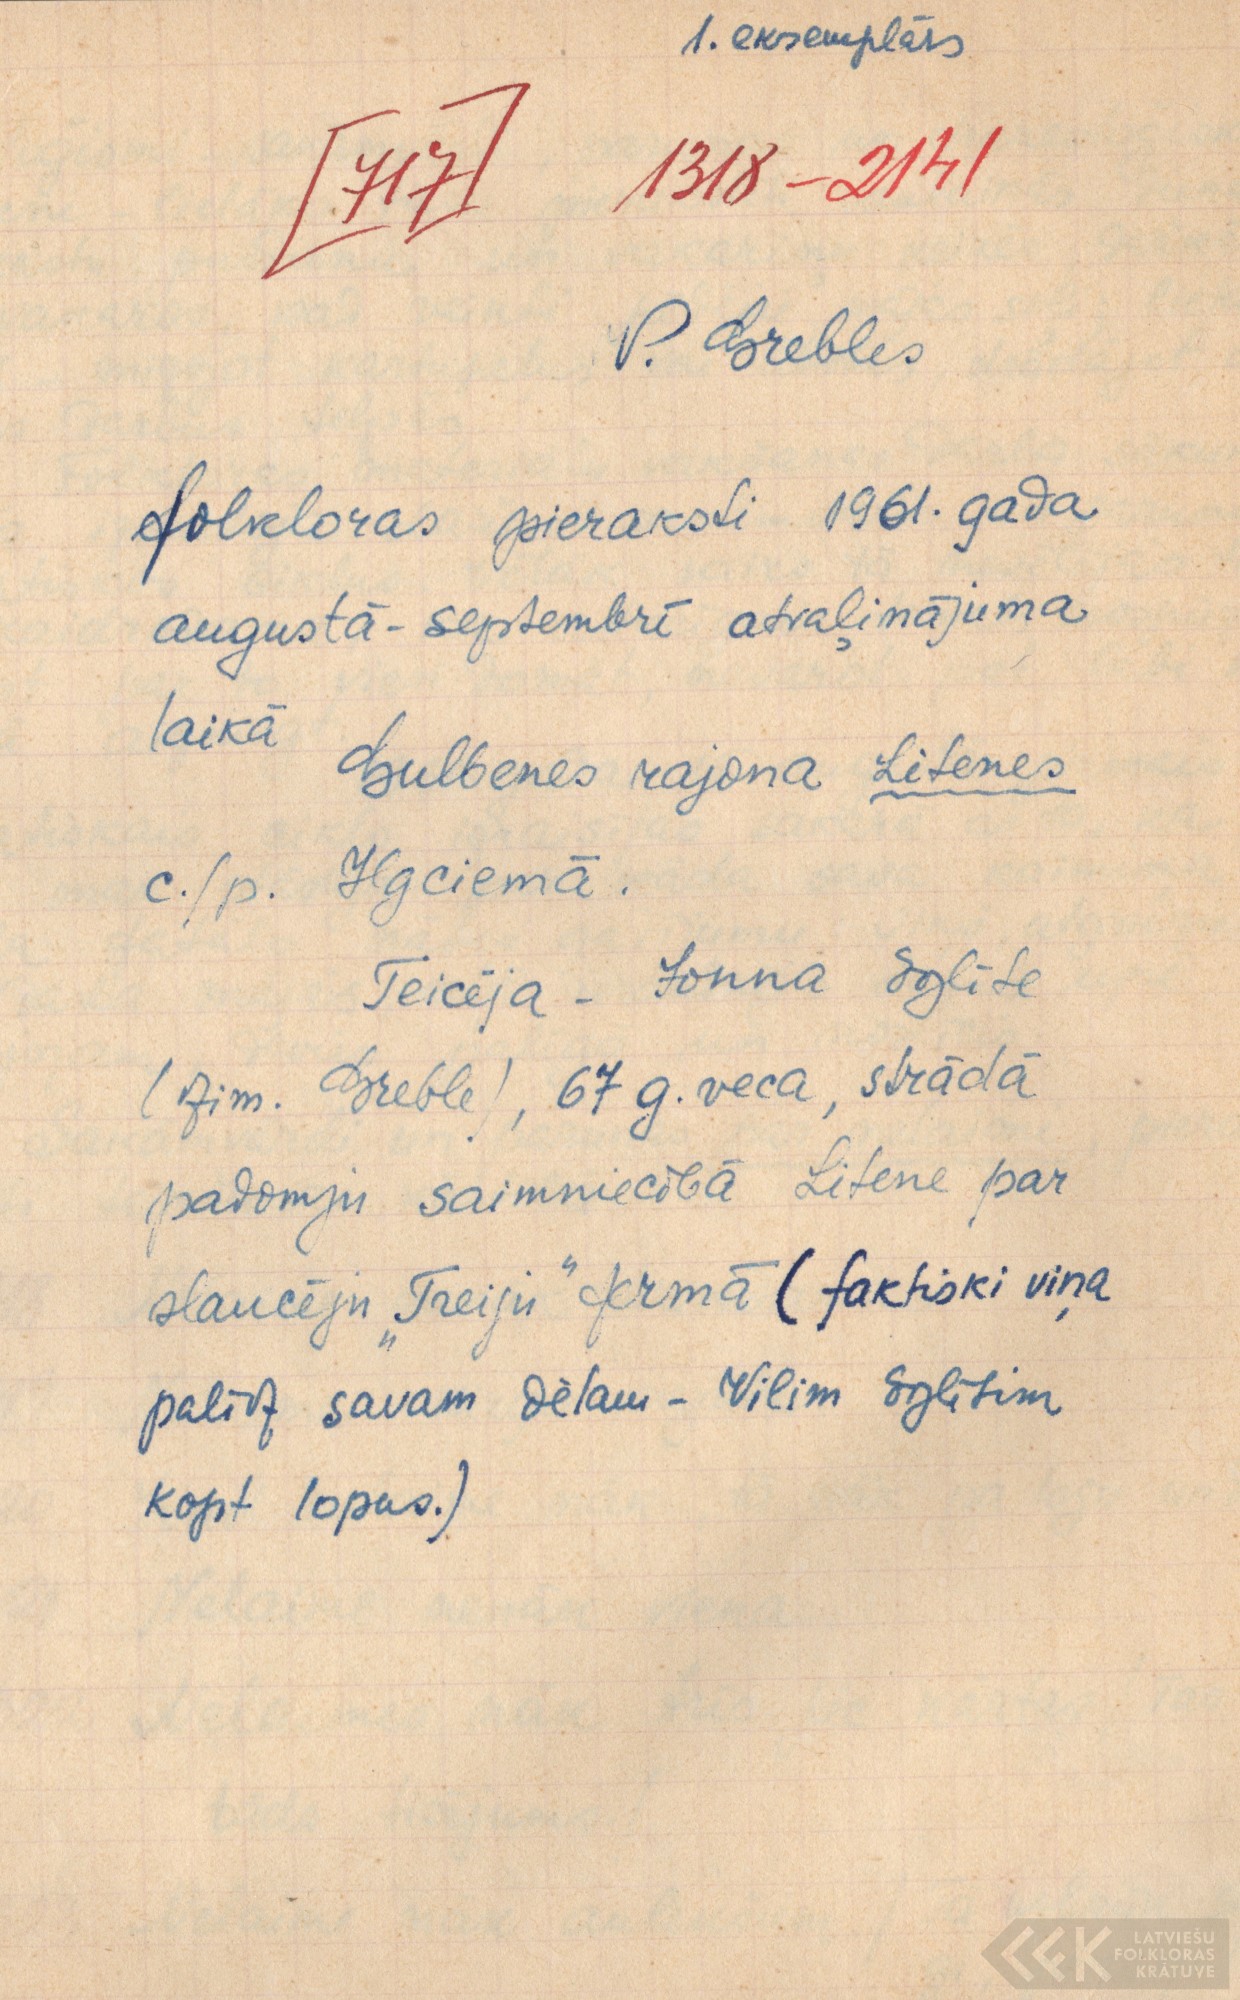 1. eksemplārs
[717] 1318-2141
V. Grebles
folkloras pieraksti 1961. gada
augustā-septembrī atvaļinājuma
laikā Gulbenes rajona Litenes
c./p. Ilgciemā.
Teicēja - Zonna Eglīte
(dzim. Greble), 67 g. veca, strādā
padomju saimniecībā Litene par
slaucēju „Treiju" fermā (faktiski viņa
palīdz savam dēlam - Vilim Eglītim
kopt lopus.)
LATVIEŠU
FOLKLORAS
KRĀTUVE